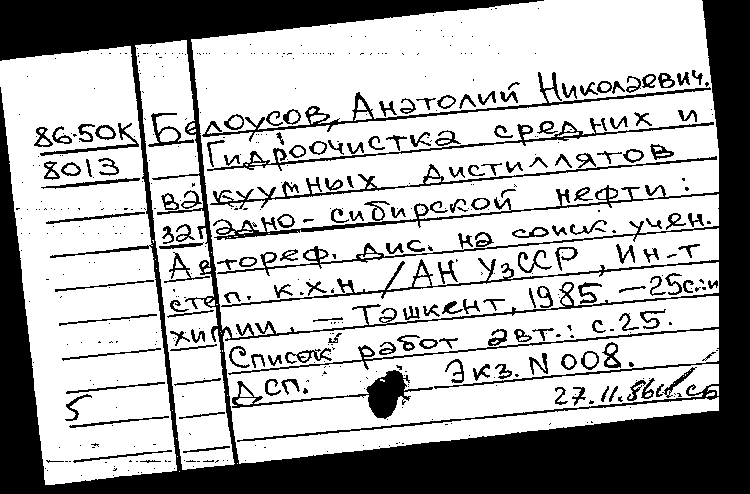 86-50К Белоусов, Анатолий Николаевич.
8013 Гидроочистка средних и
вакуумных дистиллятов
западно-сибирской нефти:
Автореф. дис. на соиск. учен.
степ. к.х.н. / АН УзССР, Ин-т
химии. — Ташкент, 1985. — 25с.:и
Список работ авт.: с.25.
ДСП. Экз. N 008.
5 27.11.86